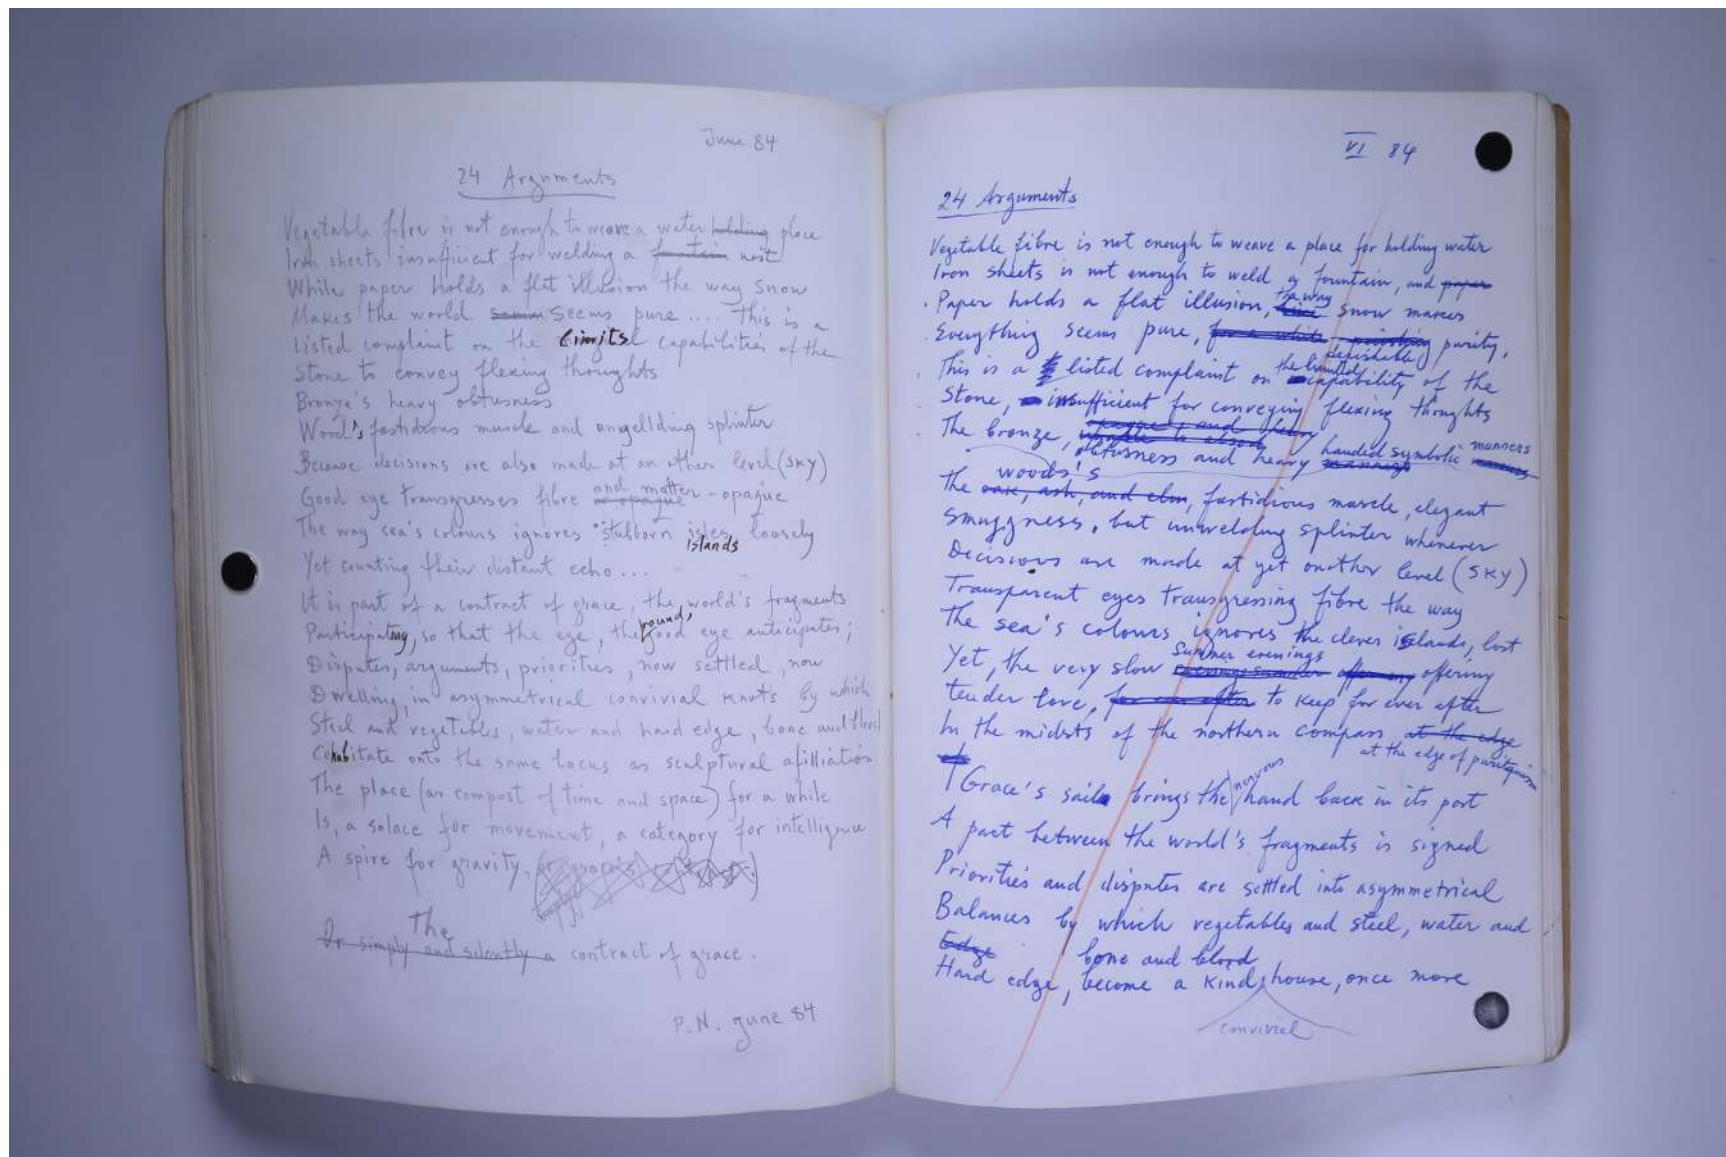 June 84
24 Arguments
Vegetable fibre is not enough to weave a water holding place
Iron sheets insufficient for welding a fountain nest
While paper holds a flat illusion the way snow
Makes the world seems pure .... This is a
Listed complaint on the limits capabilities of the
Stone to convey flexing thoughts
Bronze's heavy obtusness
Wood's fastidious muscle and angellding splinter
Because decisions are also made at an other level (SKY)
Good eye transgresses fibre and matter - opaque
or opaque
The way sea's colours ignores stubborn isles loosely
islands
Yet counting their distant echo...
It is part of a contract of grace, the world's fragments
Participating, so that the eye, the round, good eye anticipates;
Disputes, arguments, priorities, now settled, now
Dwelling, in asymmetrical convivial knots by which
Steel and vegetables, water and hard edge, bone and blood
Cohabitate onto the same locus as sculptural afilliation
The place (an compost of time and space) for a while
Is, a solace for movement, a category for intelligence
A spire for gravity,
The
Or simply and silently a contract of grace.
P.N. June 84
VI 84
24 Arguments
Vegetable fibre is not enough to weave a place for holding water
Iron sheets is not enough to weld a fountain, and paper
Paper holds a flat illusion, the way snow makes
Everything seems pure, for a white punishing purity,
This is a listed complaint on the limited capability of the
Stone, insufficient for conveying flexing thoughts
The bronze,
obtusness and heavy handed symbolic manners
woods's
The oak, ash, and elm, fastidious muscle, elegant
Smuggness, but unwelding splinter whenever
Decisions are made at yet another level (SKY)
Transparent eyes transgressing fibre the way
The sea's colours ignores the clever islands, lost
Summer evenings
Yet, the very slow evenings summer offering offering
tender love, for ever after to keep for ever after
In the midsts of the northern compass at the edge
at the edge of puritanism
Grace's sail brings the nervous hand back in its port
A pact between the world's fragments is signed
Priorities and disputes are settled into asymmetrical
Balances by which vegetables and steel, water and
Edge bone and blood
Hard edge, become a kind house, once more
convivial